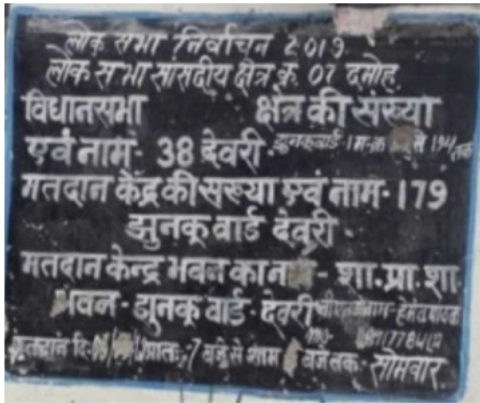 लोक सभा निर्वाचन 2019.
लोक सभा सांसदीय क्षेत्र क्र. 07 दमोह
विधानसभा क्षेत्र की संख्या
एवं नाम- 38 देवरी. झुनकूवार्ड
मतदान केंद्र की सख्या एवं नाम-179
झुनकू वार्ड देवरी.
मतदान केन्द्र भवन का - शा.प्रा.शा.
भवन - झुनकू वार्ड - देवरी
प्रातः-7 बजे से शाम बजे तक - सोमवार